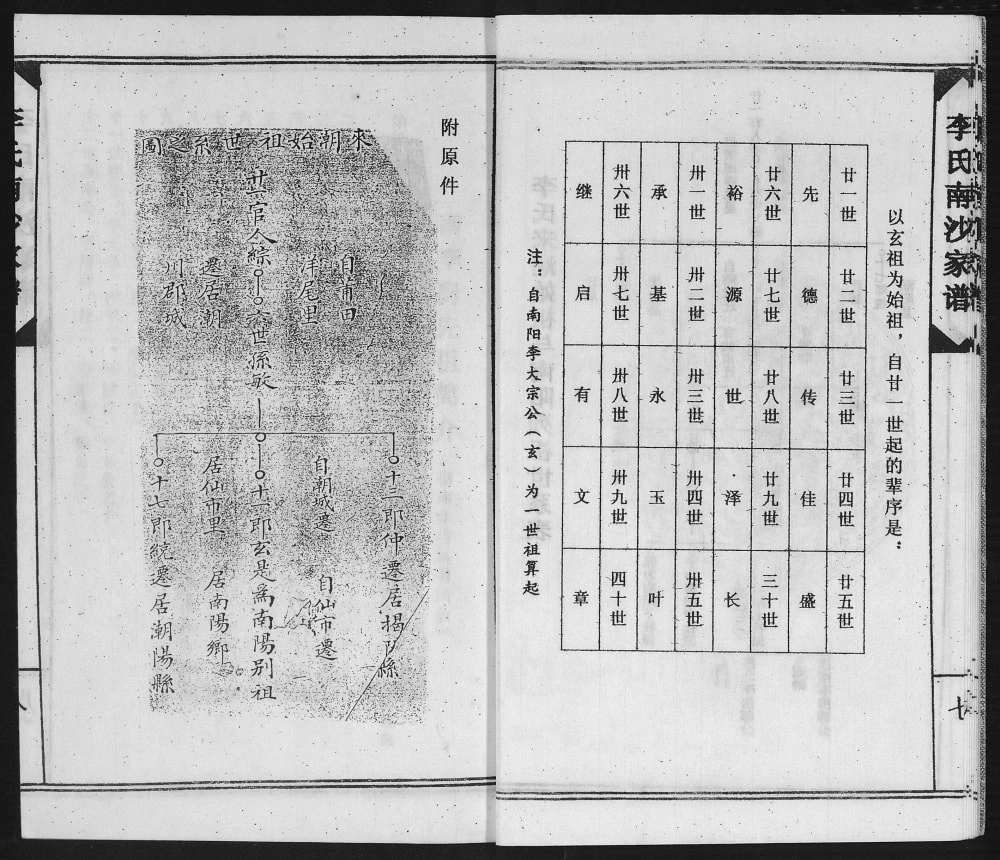 李氏南沙家谱
七
以玄祖为始祖，自廿一世起的辈序是：
廿一世 廿二世 廿三世 廿四世 廿五世
先 德 传 佳 盛
廿六世 廿七世 廿八世 廿九世 三十世
裕 源 世 泽 长
卅一世 卅二世 卅三世 卅四世 卅五世
承 基 永 玉 叶
卅六世 卅七世 卅八世 卅九世 四十世
继 启 有 文 章
注：自南阳李大宗公（玄）为一世祖算起
附原件
來朝始祖世系之圖
自莆田
洋尾里
廿一官人綜
六世孫敏
遷居潮
川郡城
十二郎仲遷居揭
縣
自朝城遷
自仙市遷
十一郎玄是為南陽别祖
居仙市里
居南陽鄉
十七郎統遷居潮陽縣
八